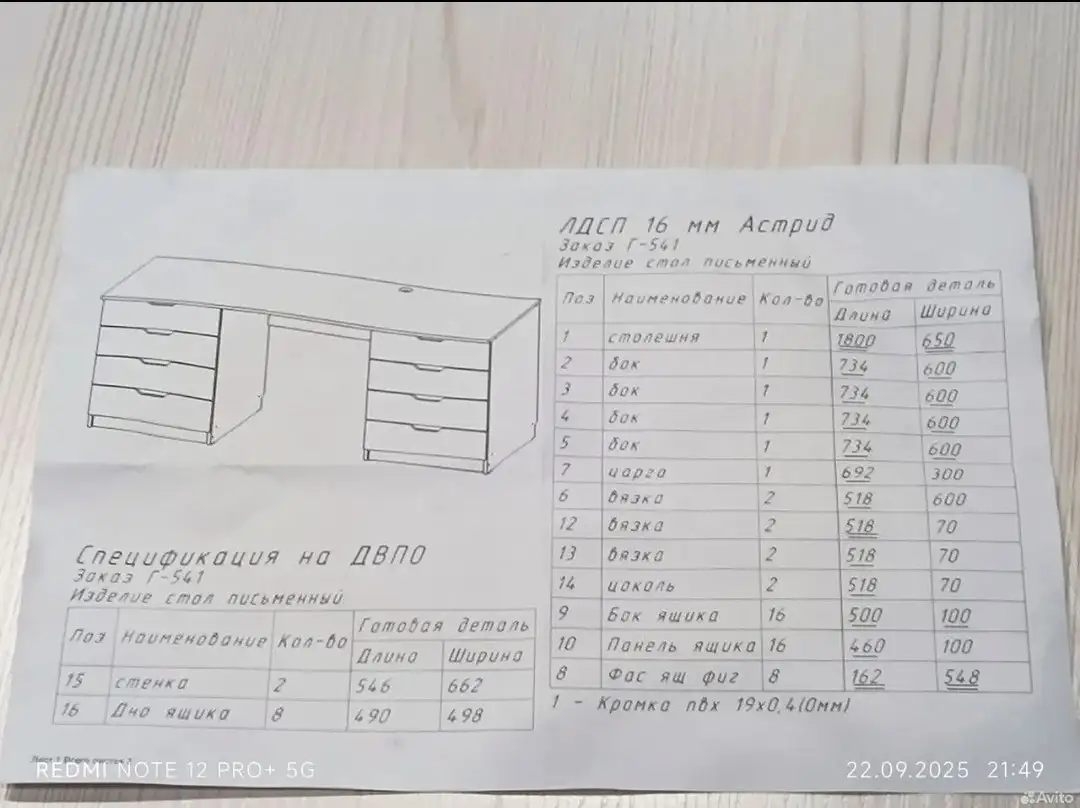 ЛДСП 16 мм Астрид
Заказ Г-541
Изделие стол письменный
Поз Наименование Кол-во Готовая деталь
Длина Ширина
1 столешня 1 1800 650
2 бок 1 734 600
3 бок 1 734 600
4 бок 1 734 600
5 бок 1 734 600
7 царга 1 692 300
6 вязка 2 518 600
12 вязка 2 518 70
13 вязка 2 518 70
14 цоколь 2 518 70
9 Бок ящика 16 500 100
10 Панель ящика 16 460 100
8 Фас ящ фиг 8 162 548
1 - Кромка пвх 19х0,4(0мм)
Спецификация на ДВПО
Заказ Г-541
Изделие стол письменный
Поз Наименование Кол-во Готовая деталь
Длина Ширина
15 стенка 2 546 662
16 Дно ящика 8 490 498
REDMI NOTE 12 PRO+ 5G
22.09.2025 21:49
Avito